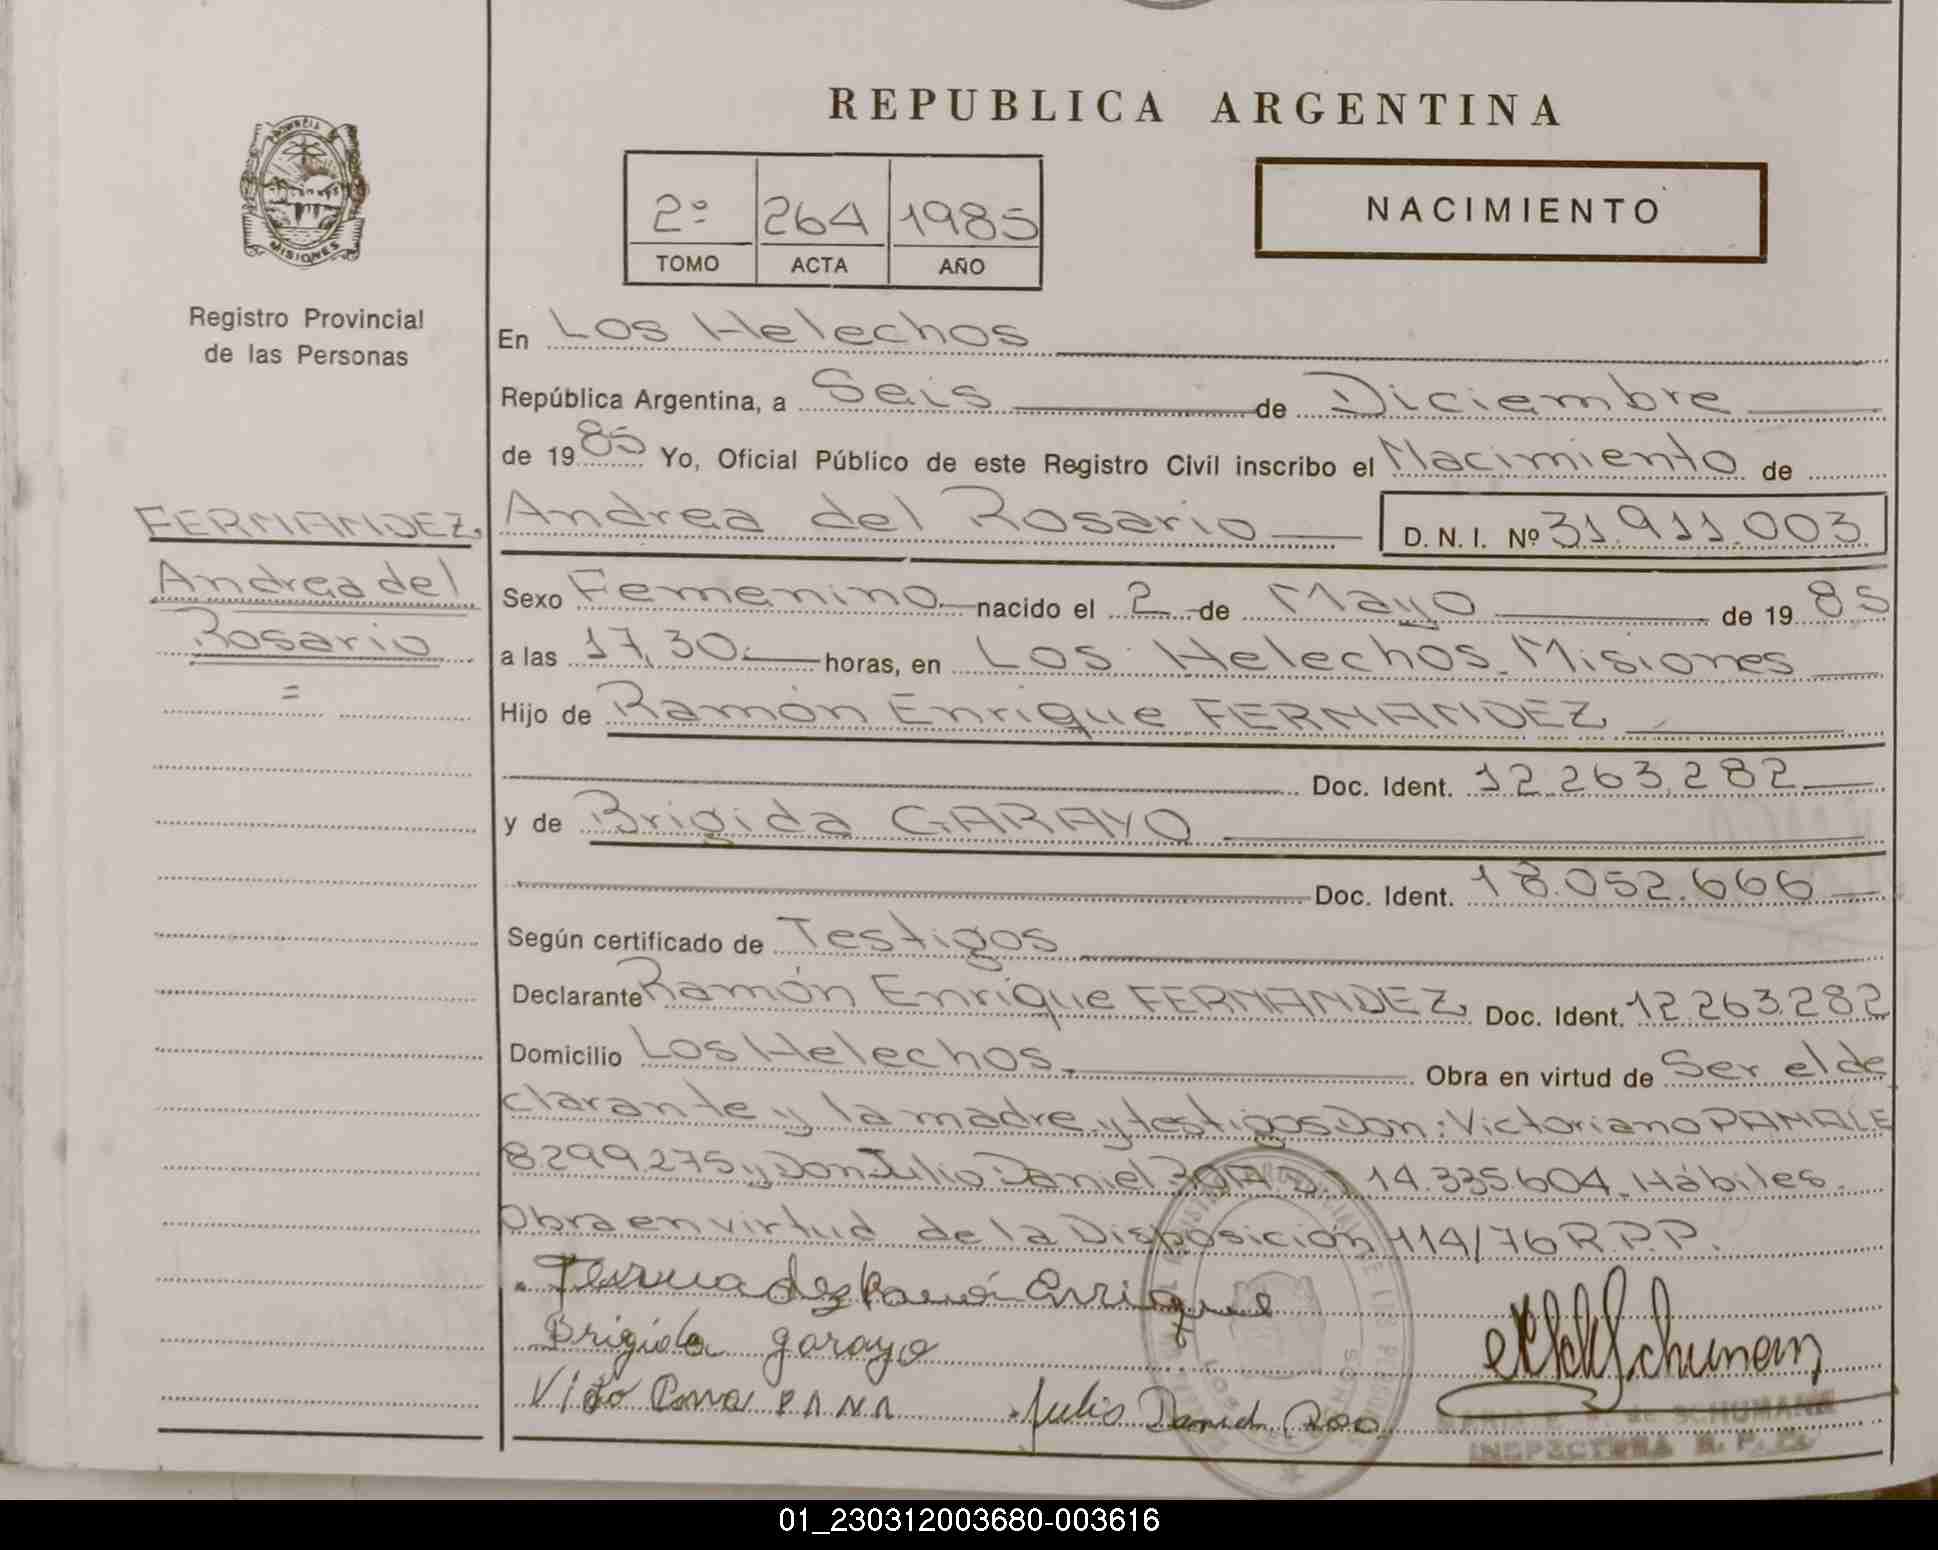 REPUBLICA ARGENTINA
PROVINCIA
MISIONES
Registro Provincial
de las Personas
2º 264 1985
TOMO ACTA AÑO
NACIMIENTO
En Los Helechos
República Argentina, a Seis de Diciembre
de 1985 Yo, Oficial Público de este Registro Civil inscribo el Nacimiento de
FERNANDEZ,
Andrea del
Rosario
=
Andrea del Rosario D. N. I. Nº 31.911.003
Sexo Femenino nacido el 2 de Mayo de 1985
a las 17,30. horas, en Los Helechos. Misiones
Hijo de Ramón Enrique FERNANDEZ,
Doc. Ident. 12.263.282
y de Brigida GARAYO
Doc. Ident. 18.052.666
Según certificado de Testigos
Declarante Ramón Enrique FERNANDEZ, Doc. Ident. 12.263.282
Domicilio Los Helechos. Obra en virtud de Ser el de
clarante y la madre y testigos Don: Victoriano
8299.275 y Don Julio Daniel 14.335.604. Hábiles.
Obra en virtud de la Disposición 114/76 R.P.P.
Enrique
Brigida garayo
Julio Daniel
Schumann
de SCHUMANN
INSPECTORA R. P. P.
01_230312003680-003616